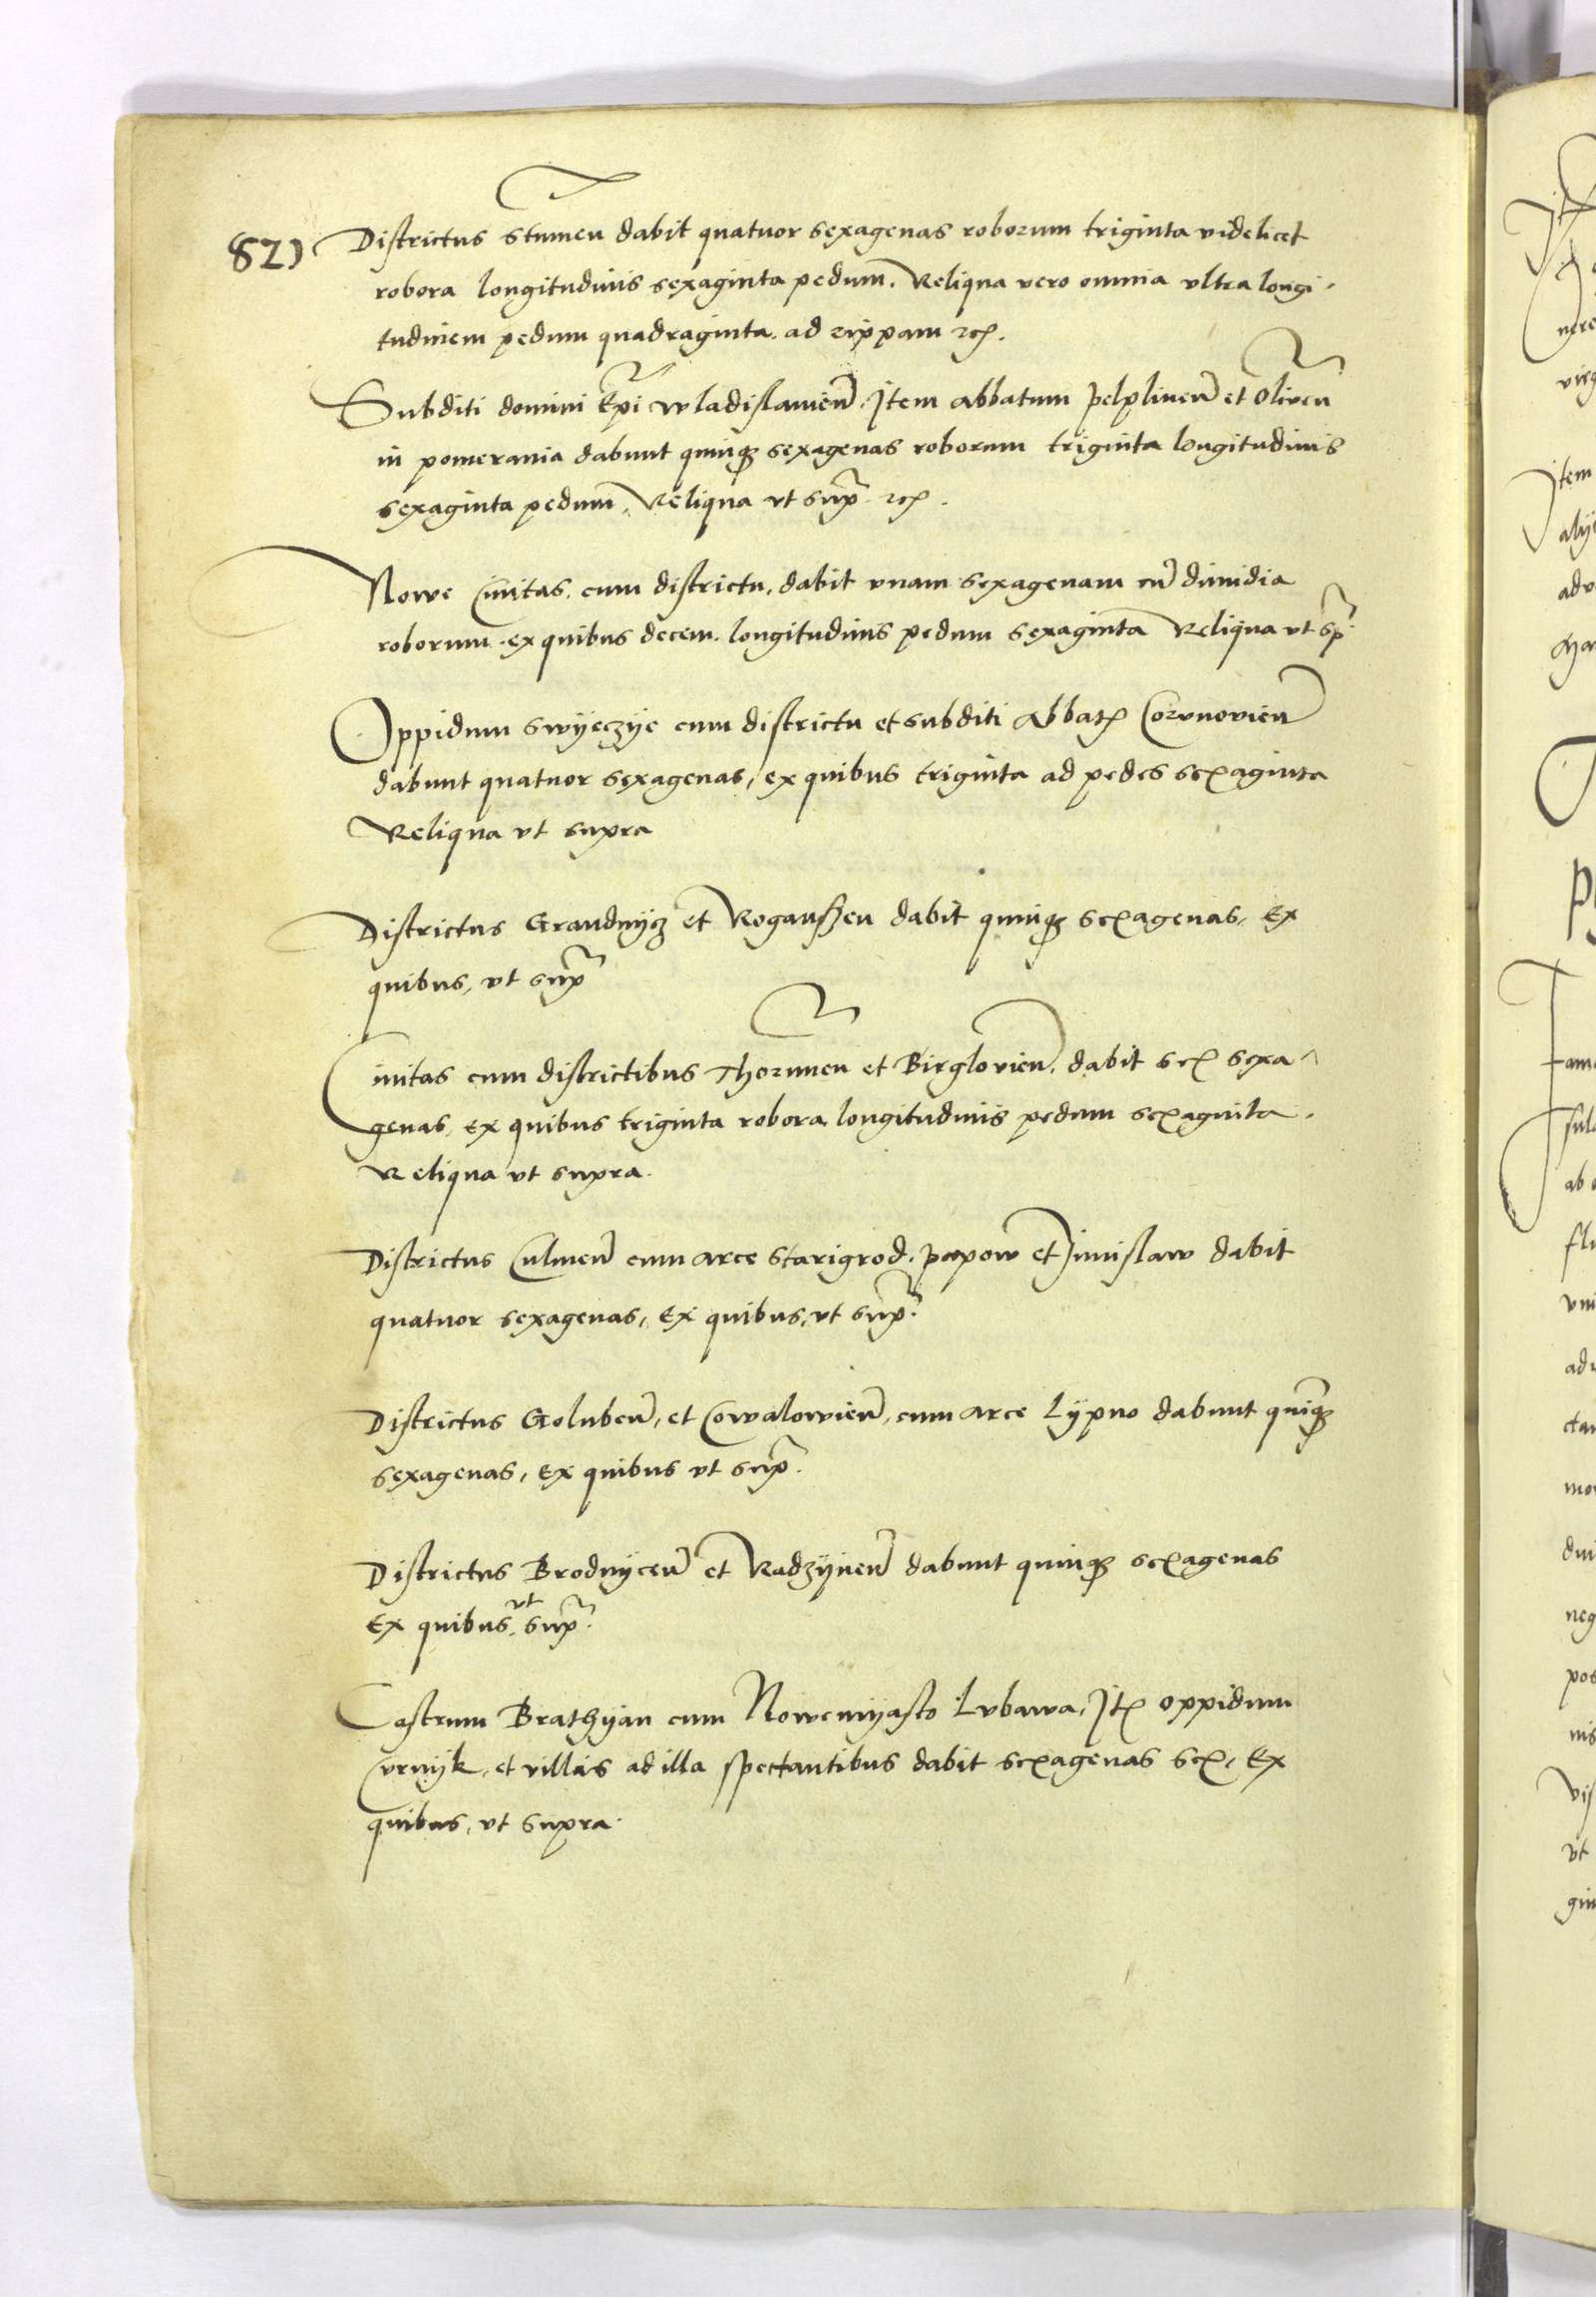 82)
Districtus Stumen dabit quatuor sexagenas roborum triginta videlicet
robora longitudinis sexaginta pedum. Reliqua vero omnia vltra longi-
tudinem pedum quadraginta. ad rippam etc.
Subditi domini Epi Wladislavien. Item Abbatum Pelplinen et Oliven
in pomerania dabunt quinq sexagenas roborum triginta longitudinis
sexaginta pedum, Reliqua vt sup etc.
Nowe Civitas cum districtu, dabit vnam sexagenam cu dimidia
roborum. ex quibus decem. longitudinis pedum sexaginta Reliqua vt sp.
Oppidum Swyeczye cum districtu et subditi Abbatis Coronovien
dabunt quatuor sexagenas, ex quibus triginta ad pedes sexaginta
Reliqua vt supra
Districtus Graudnycz et Roganszen dabit quinq sexagenas, Ex
quibus, vt sup
Civitas cum districtibus Thorunen et Birglovien, dabit sex sexa-
genas, Ex quibus triginta robora longitudinis pedum sexaginta.
Reliqua vt supra.
Districtus Culmen cum arce Starigrod. Papow et Zimislaw dabit
quatuor sexagenas, Ex quibus, vt sup.
Districtus Goluben, et Cowalowien, cum arce Lypno dabunt quiq
sexagenas, Ex quibus vt sup.
Districtus Brodnycen et Radzynen dabunt quinq sexagenas
Ex quibus, vt sup.
Castrum Brathyan cum Nowemyasto Lubawa, Ite oppidum
Curnyk, et villis ad illa spectantibus dabit sexagenas sex, Ex
quibus, vt supra.